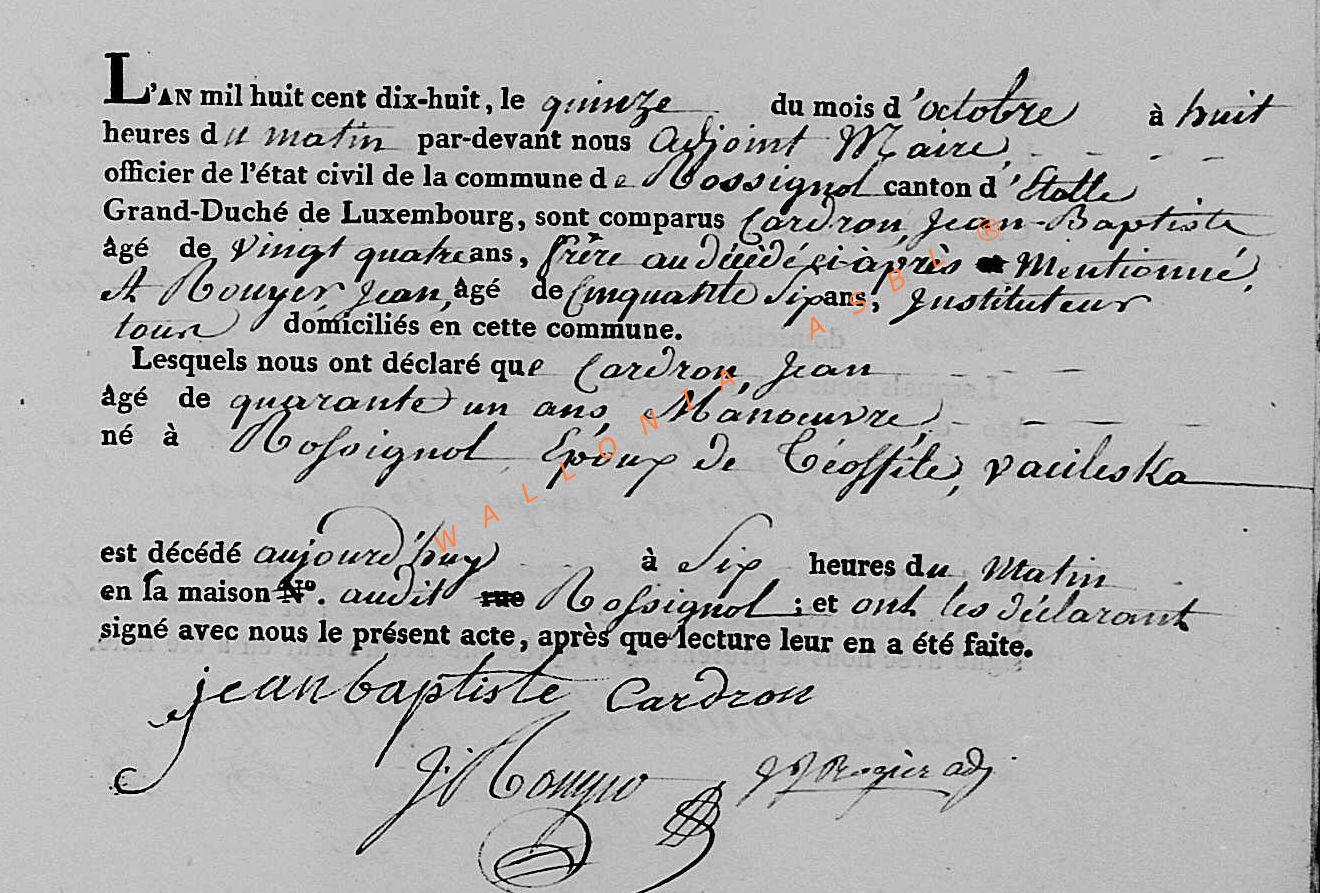 L'AN mil huit cent dix-huit, le quinze du mois d'octobre à huit
heures du matin par-devant nous Adjoint Maire, - - - -
officier de l'état civil de la commune de Rossignol canton d'Etalle
Grand-Duché de Luxembourg, sont comparus Cardron, Jean-Baptiste
âgé de vingt quatre ans, frère au décédé ci-après Mentionné,
et Rouyer, Jean, âgé de Cinquante Six ans, Instituteur
tous domiciliés en cette commune.
Lesquels nous ont déclaré que Cardron, Jean - - -
âgé de quarante un ans, Manoeuvre, - - - -
né à Rossignol, Epoux de Téoffile, Vacileska
est décédé aujourd'huy à Six heures du Matin
en sa maison N°. audit rue Rossignol ; et ont les déclarant
signé avec nous le présent acte, après que lecture leur en a été faite.
jean baptiste Cardron
J. Rouyer
adj
WALLONIA ASBL ®